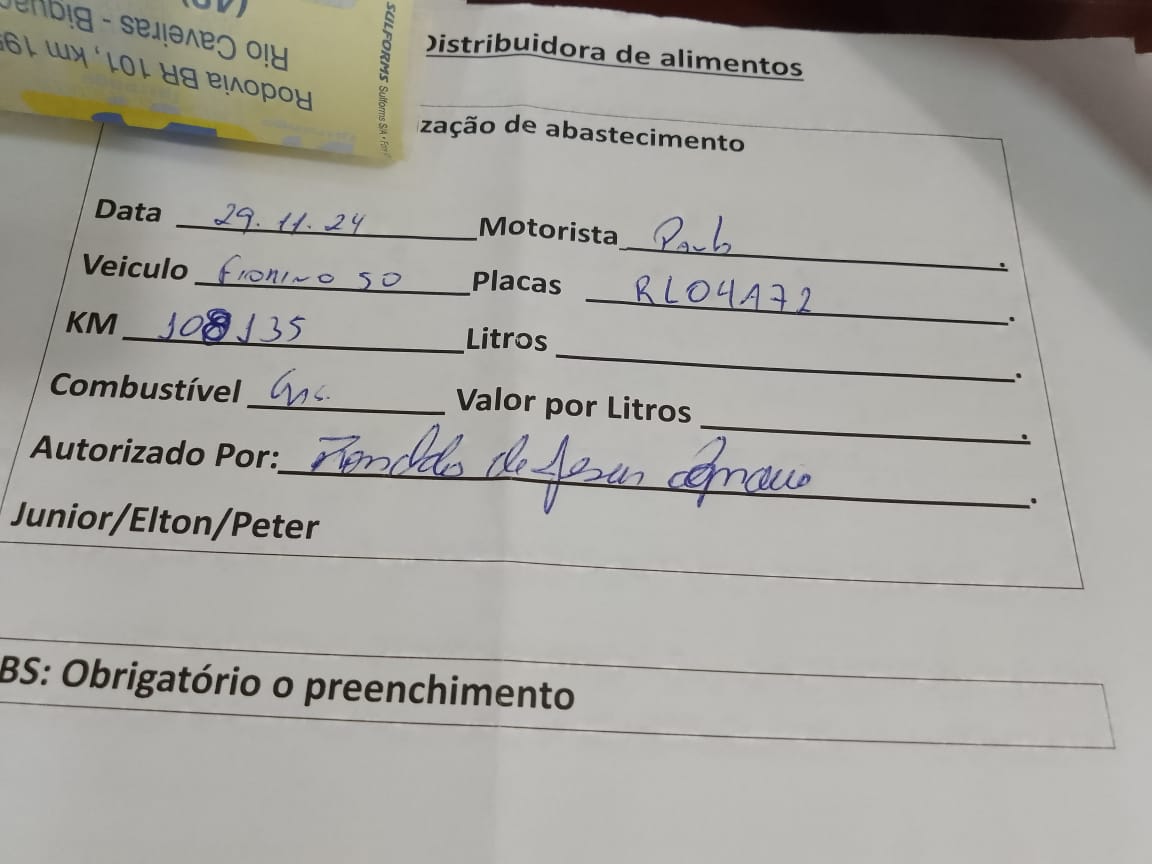 Rodovia BR 101, km 19
Rio Caveiras - Bigua
SULFORMS Sulforms S/A
Distribuidora de alimentos
ização de abastecimento
Data 29.11.24 Motorista Paulo
Veiculo Fiorino 50 Placas RLO4A72.
KM 108135 Litros.
Combustível Gas. Valor por Litros.
Autorizado Por: Ronaldo de Jesus.
Junior/Elton/Peter
BS: Obrigatório o preenchimento